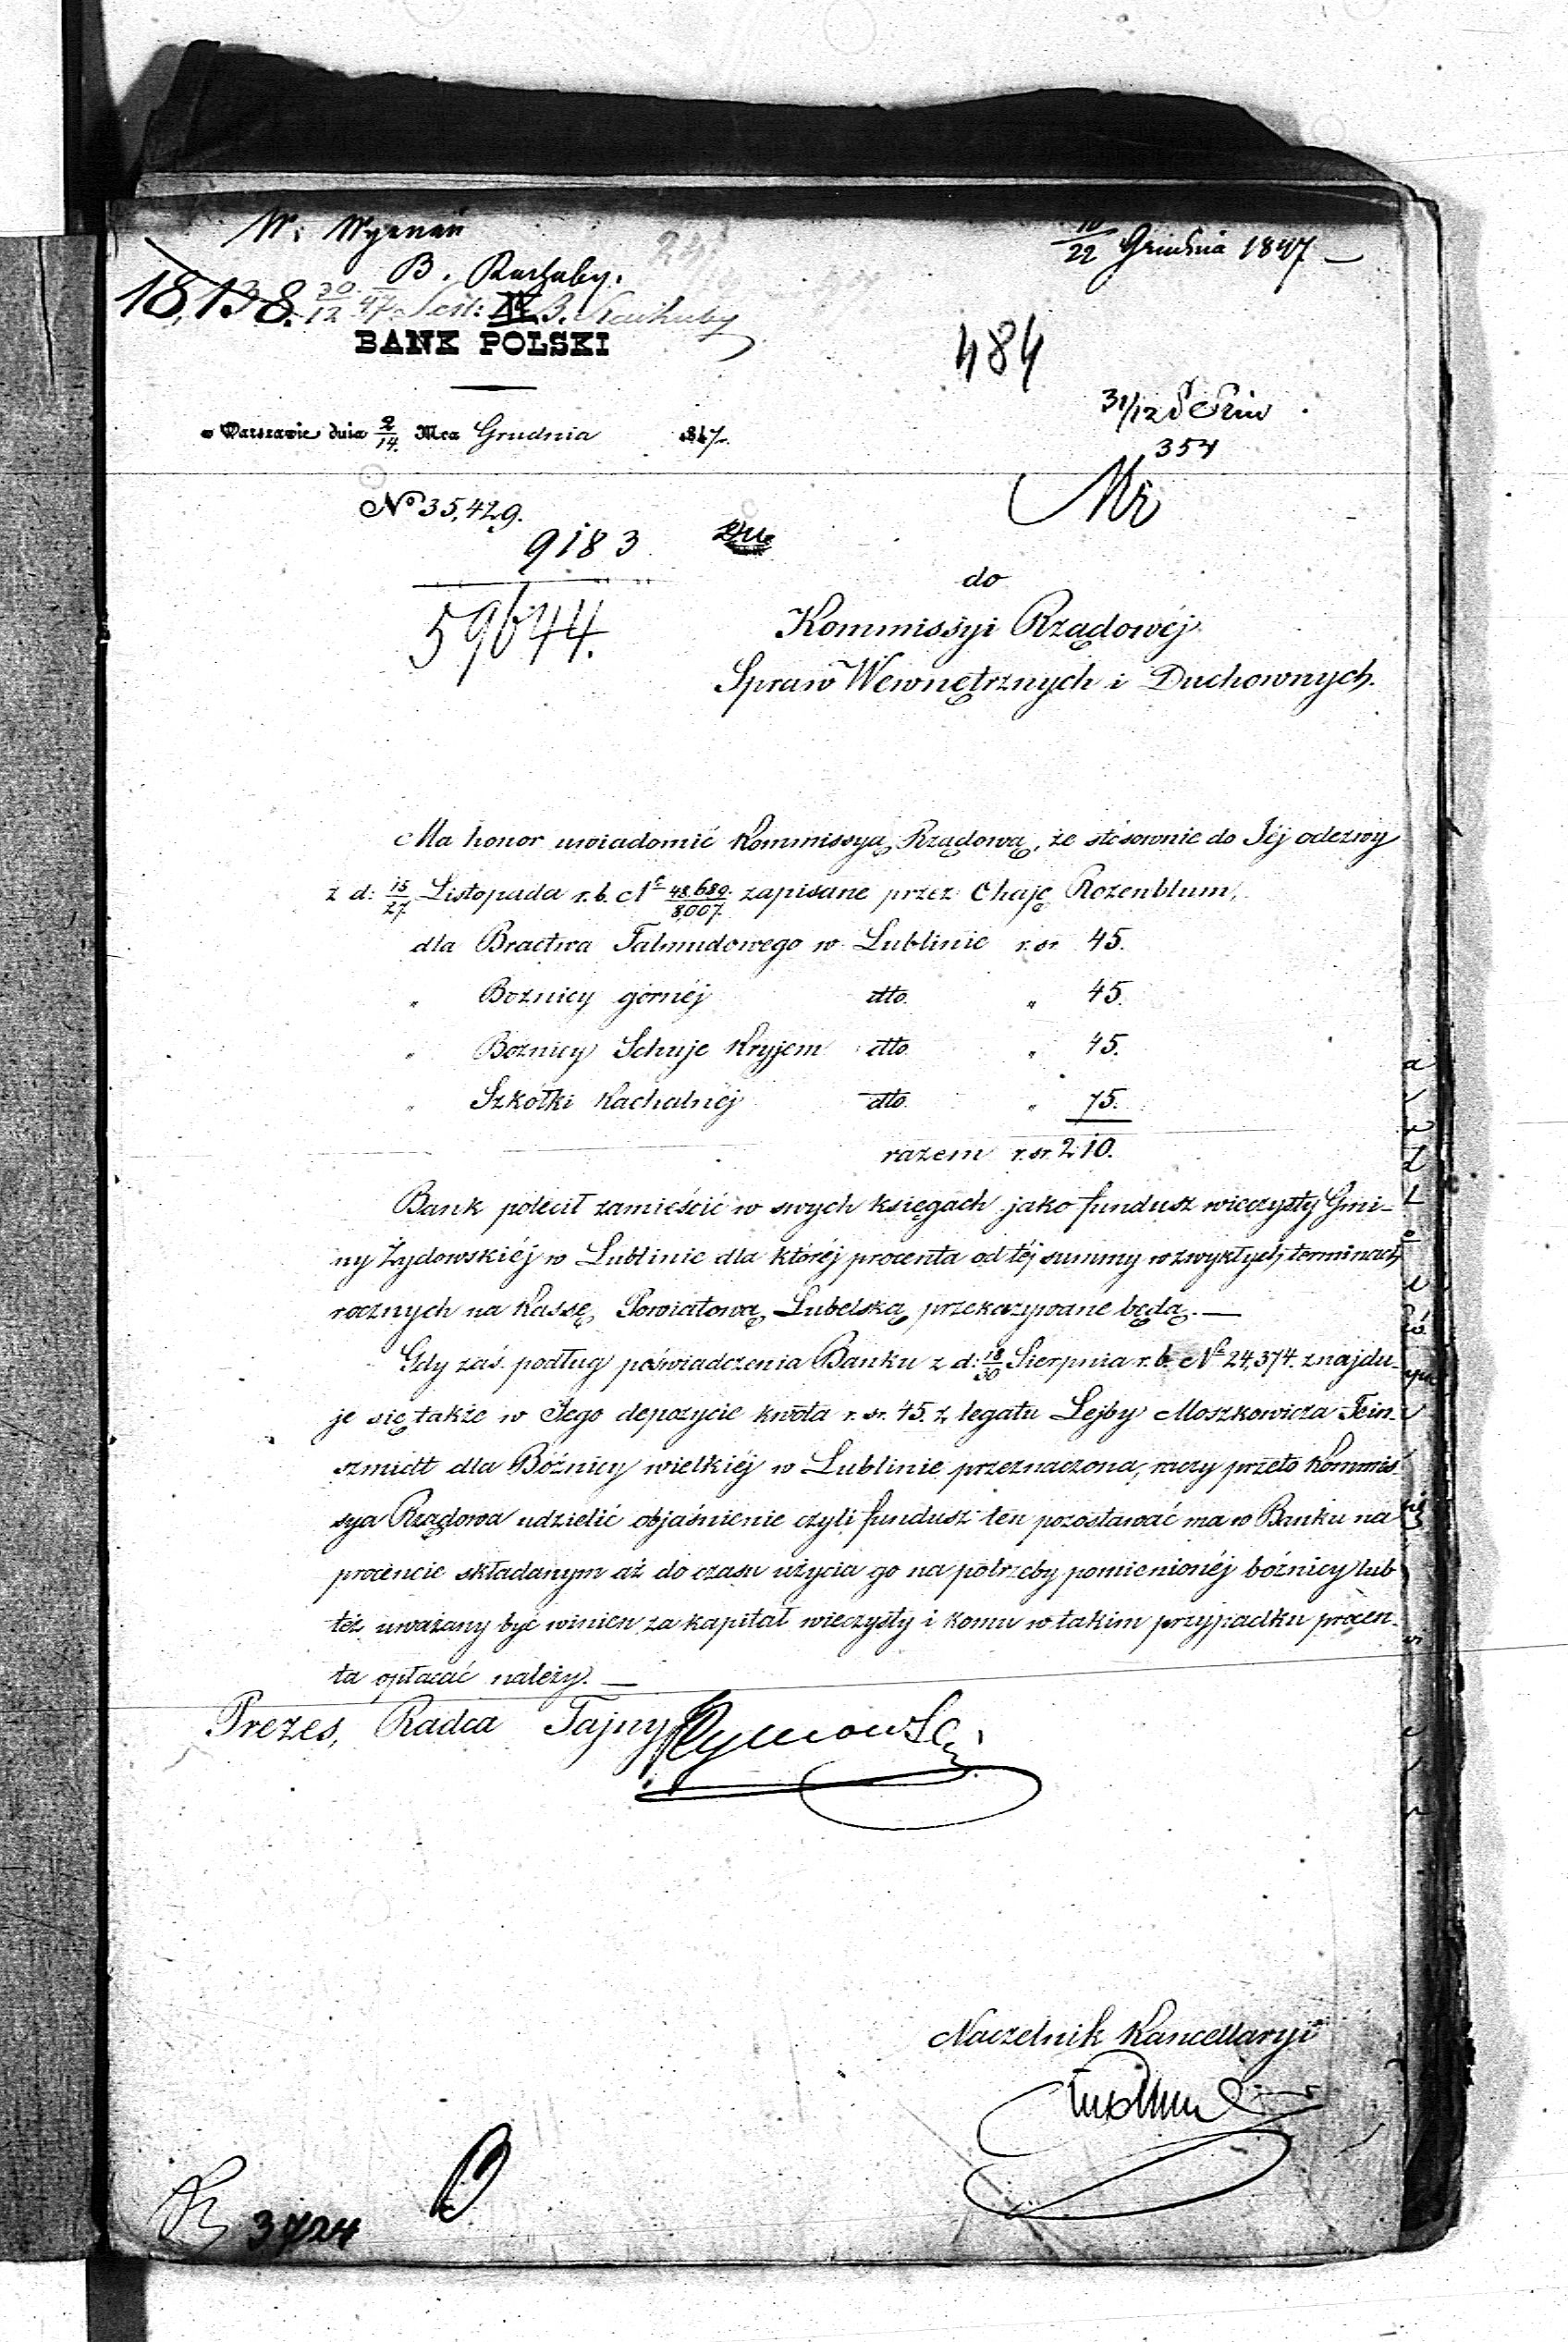 W. Wyznań
10/22 Grudnia 1847
B. Rachuby.
18,138. 30/12 47.
BANK POLSKI
484
31/12
w Warszawie dnia 2/14. Mca Grudnia 1847.
354
No 35,429.
9183
59644.
do
Kommissyi Rządowéj
Spraw Wewnętrznych i Duchownych.
Ma honor uwiadomić Kommissyą Rządową, że stosownie do Jéj odezwy
z d: 15/27 Listopada r. b. No 48,689./8,007. zapisane przez Chaję Rozenblum,
dla Bractwa Talmudowego w Lublinie r. sr. 45.
" Boznicy górnéj dtto. " 45.
" Boznicy Schuje Kryjem dtto. " 45.
" Szkółki Kachalnéj dtto. " 75.
razem r. sr. 210.
Bank polecił zamieścić w swych księgach jako fundusz wieczysty Gmi-
ny Żydowskiéj w Lublinie dla któréj procenta od téj summy w zwykłych terminach
rocznych na Kassę Powiatową Lubelską przekazywane będą. —
Gdy zaś podług poświadczenia Banku z d: 18/30 Sierpnia r. b. No 24,374. znajdu-
je się także w Jego depozycie kwota r. sr. 45. z legatu Lejby Moszkowicza Fein-
szmidt dla Bóżnicy wielkiéj w Lublinie przeznaczona, raczy przeto Kommis-
sya Rządowa udzielić objaśnienie czyli fundusz ten pozostawać ma w Banku na
procencie składanym aż do czasu użycia go na potrzeby pomienionéj bóżnicy lub
też uważany być winien za kapitał wieczysty i komu w takim przypadku procen-
ta opłacać należy. —
Prezes, Radca Tajny Tymowski
Naczelnik Kancellaryi
3724